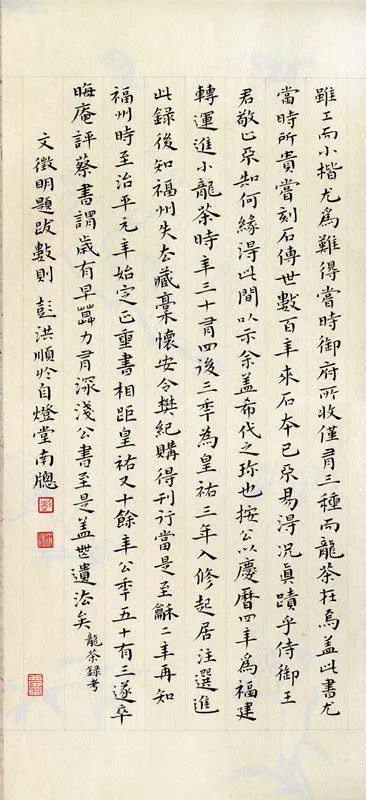 雖工而小楷尤爲難得當時御府所收僅有三種而龍茶在焉盖此書尤
當時所貴嘗刻石傳世數百年來石本已不易得況真蹟乎侍御王
君敬止不知何緣得此間以示余盖希代之珎也按公以慶曆四年爲福建
轉運進小龍茶時年三十有四後三年為皇祐三年入修起居注選進
此錄後知福州失去藏稾懷安令樊紀購得刊行當是至龢二年再知
福州時至治平元年始定正重書相距皇祐又十餘年公年五十有三遂卒
晦庵評蔡書謂歲有早力有深淺公書至是盖遺法矣龍茶錄考
文徵明題跋數則 彭洪順於自燈堂南牕